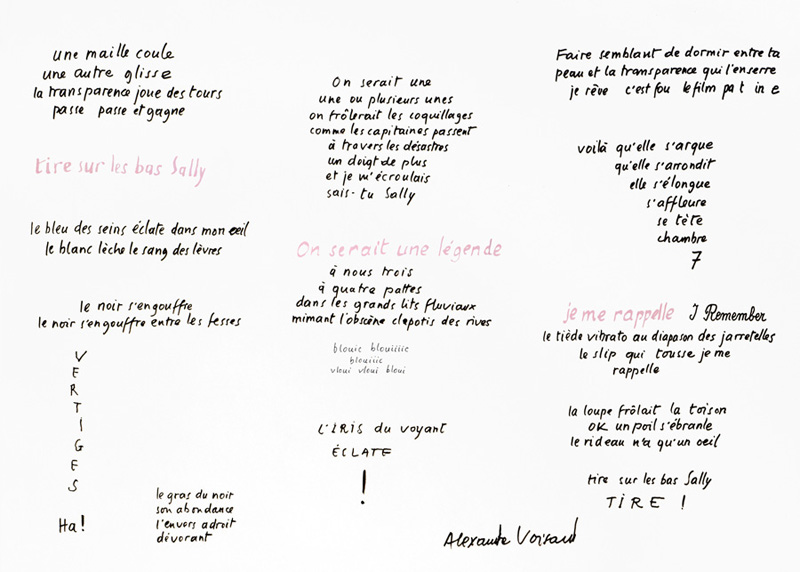 une maille coule
une autre glisse
la transparence joue des tours
passe passe et gagne
tire sur les bas Sally
le bleu des seins éclate dans mon œil
le blanc lèche le sang des lèvres
le noir s'engouffre
le noir s'engouffre entre les fesses
V
E
R
T
I
G
E
S
Ha!
le gras du noir
son abondance
l'envers adroit
dévorant
On serait une
une ou plusieurs unes
on frôlerait les coquillages
comme les capitaines passent
à travers les désastres
un doigt de plus
et je m'écroulais
sais-tu Sally
On serait une légende
à nous trois
à quatre pattes
dans les grands lits fluviaux
mimant l'obscène clapotis des rives
blouic blouiiiic
blouiiic
vloui vloui bloui
L'IRIS du voyant
ÉCLATE
!
Faire semblant de dormir entre ta
peau et la transparence qui l'enserre
je rêve c'est fou le film pa t in e
voilà qu'elle s'arque
qu'elle s'arrondit
elle s'élongue
s'affleure
se tète
chambre
7
je me rappelle I Remember
le tiède vibrato au diapason des jarretelles
le slip qui tousse je me
rappelle
la loupe frôlait la toison
OK un poil s'ébranle
le rideau n'a qu'un oeil
tire sur les bas Sally
TIRE !
Alexandre Voisard